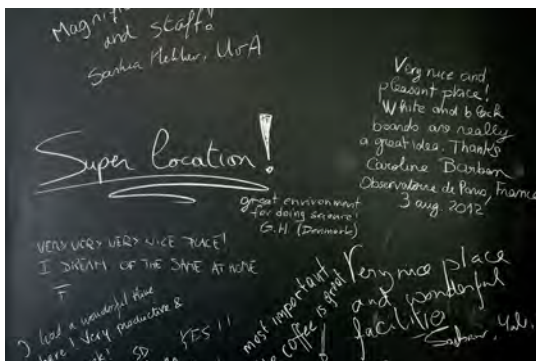 and staff!
Saskia Hekker, UvA
Very nice and
pleasant place!
White and black
boards are really
a great idea. Thanks
Caroline Barban
Observatoire de Paris, France
3 aug. 2012
Super location!
great environment
for doing science!
G.H. (Denmark)
VERY VERY VERY NICE PLACE!
I DREAM OF THE SAME AT HOME
I had a wonderful time
here! Very productive &
YES!!
most important,
coffee is great!
Very nice place
and wonderful
facilities